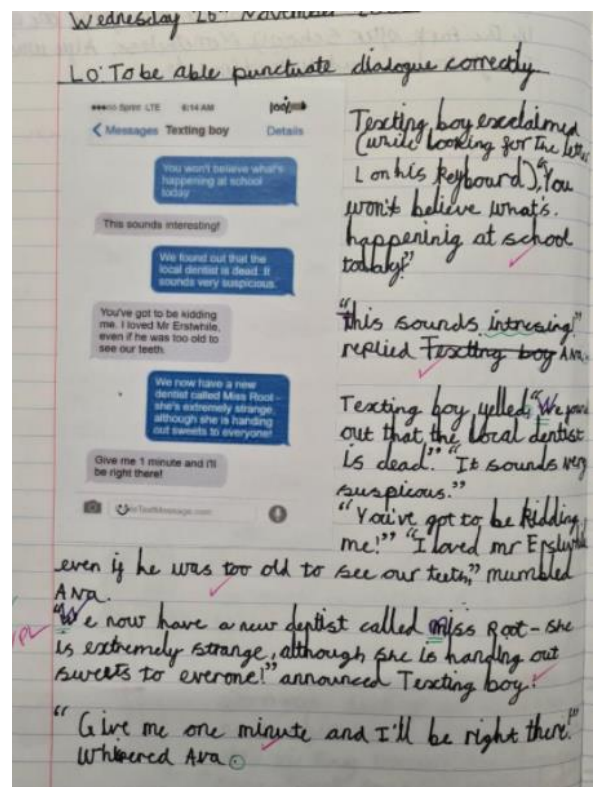 Wednesday 26th November
LO: To be able punctuate dialogue correctly
Sprint LTE 6:14 AM
Messages Texting boy Details
You won't believe what's
happening at school
today
This sounds interesting!
We found out that the
local dentist is dead. It
sounds very suspicious.
You've got to be kidding
me. I loved Mr Erstwhile,
even if he was too old to
see our teeth.
We now have a new
dentist called Miss Root -
she's extremely strange,
although she is handing
out sweets to everyone!
Give me 1 minute and I'll
be right there!
Texting boy exclaimed
(while looking for the letter
L on his keyboard), "You
won't believe what's.
happening at school
today!"
"This sounds intresing!"
replied Texting boy Ava.
Texting boy yelled, "We found
out that the local dentist
is dead." "It sounds very
suspicous."
"You've got to be kidding
me!" "I loved mr
even if he was too old to see our teeth," mumbled
Ava.
"We now have a new detist called miss Root - she
is extremely strange, although she is handing out
sweets to everone!" announced Texting boy.
"Give me one minute and I'll be right there!"
Whispered Ava.